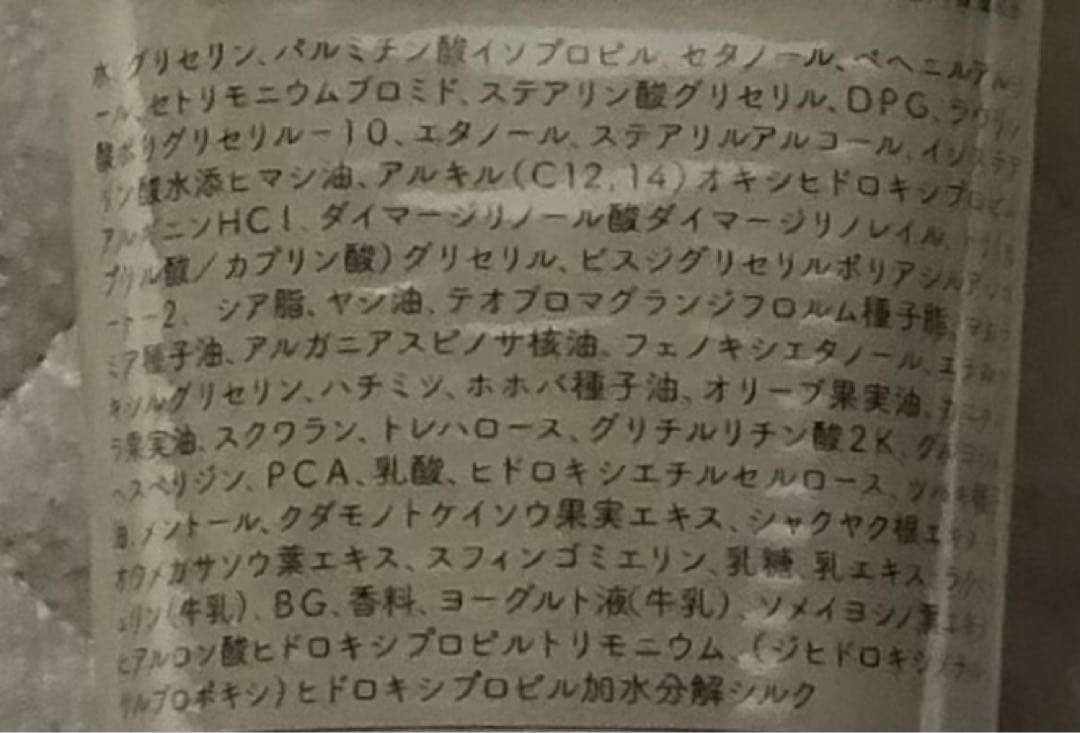 水、グリセリン、パルミチン酸イソプロピル、セタノール、ベヘニルアルコ
ール、セトリモニウムブロミド、ステアリン酸グリセリル、DPG、ラウリン
酸ポリグリセリル－10、エタノール、ステアリルアルコール、イソステア
リン酸水添ヒマシ油、アルキル(C12,14)オキシヒドロキシプロピル
アルギニンHCl、ダイマージリノール酸ダイマージリノレイル、トリ(カ
プリル酸/カプリン酸)グリセリル、ビスジグリセリルポリアシルアジペ
ート－2、シア脂、ヤシ油、テオブロマグランジフロルム種子脂、マカデ
ミア種子油、アルガニアスピノサ核油、フェノキシエタノール、エチルヘ
キシルグリセリン、ハチミツ、ホホバ種子油、オリーブ果実油、
果実油、スクワラン、トレハロース、グリチルリチン酸2K、グルコシル
ヘスペリジン、PCA、乳酸、ヒドロキシエチルセルロース、
メントール、クダモノトケイソウ果実エキス、シャクヤク根エキス
ホウメガサソウ葉エキス、スフィンゴミエリン、乳糖、乳エキス、ラクト
ェリン(牛乳)、BG、香料、ヨーグルト液(牛乳)、ソメイヨシノ葉エキス
ヒアルロン酸ヒドロキシプロピルトリモニウム、(ジヒドロキシメチル
シリルプロポキシ)ヒドロキシプロピル加水分解シルク